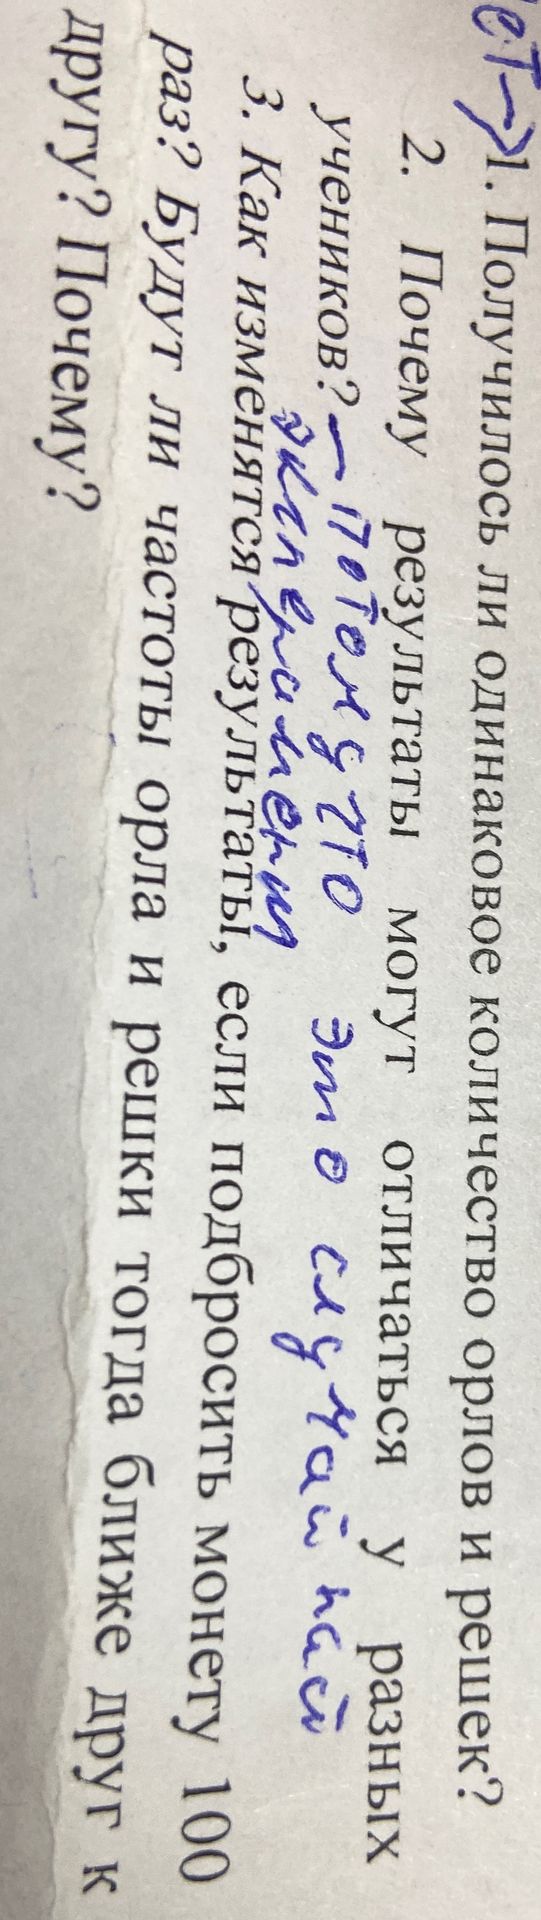 ет → 1. Получилось ли одинаковое количество орлов и решек?
2. Почему результаты могут отличаться у разных
учеников? – потому что это случайнай
эксперимент
3. Как изменятся результаты, если подбросить монету 100
раз? Будут ли частоты орла и решки тогда ближе друг к
другу? Почему?